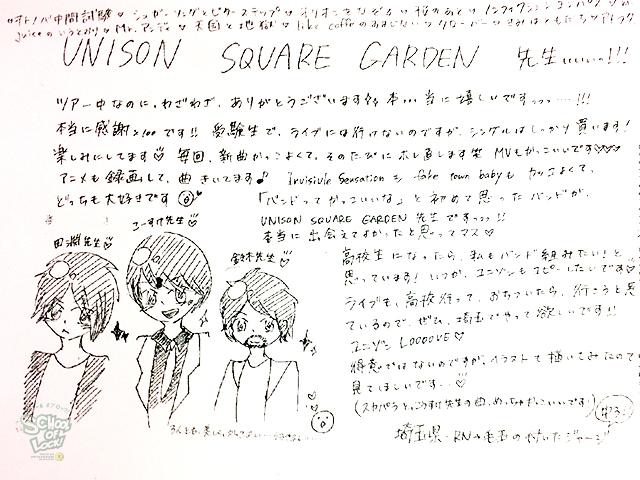 オトノバ中間試験♡ シュガーソングとビターステップ♡ オリオンをなぞる♡ 桜のあと♡
Mr.アンディ♡ 天国と地獄♡ like coffeeのおまじない♡ クローバー♡ きみはともだち♡
UNISON SQUARE GARDEN 先生ぃぃぃっ!!!
ツアー中なのに、わざわざ、ありがとうございます 本…当に嬉しいですっっっ……!!!
本当に感謝×100です!! 受験生で、ライブには行けないのですが、シングルはしっかり買います!
楽しみにしてます♡ 毎回、新曲がっこよくて、そのたびにホレ直します笑 MVもかっこいいです♡♡♡
アニメも録画して、曲きいてます♪ Invisible Sensation も fake town baby も カッコよくて、
どっちも大好きです
「バンドってかっこいいな」と初めて思ったバンドが、
UNISON SQUARE GARDEN 先生ですっっっ!!
本当に出会えてよかったと思ってマス♡
田淵先生♡
こーすけ先生♡
鈴木先生♡
高校生になったら、私もバンド組みたい!と
思っています! いつか、ユニゾンもコピーしたいです♡
ライブも、高校行って、おちついたら、行こうと思
っているので、ぜひ、埼玉でやって欲しいです!!
ユニゾン LOOOOVE♡
得意ではないのですが、イラストも描いてみたので
見てほしいです…♡
(スカパラと、こうすけ先生の曲、めっちゃかっこいいです!)
埼玉県・RN
SCHOOL OF LOCK!